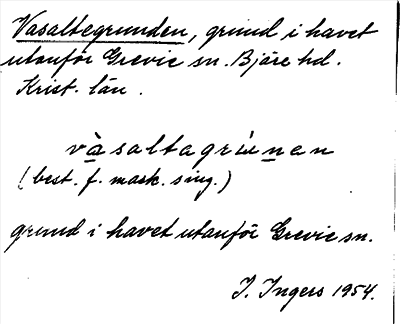 Vasaltegrunden, grund i havet
utanför Grevie sn. Bjäre hd.
Krist. län.
vàsaltagrúnen
(best. f. mask. sing.)
grund i havet utanför Grevie sn.
I. Ingers 1954.